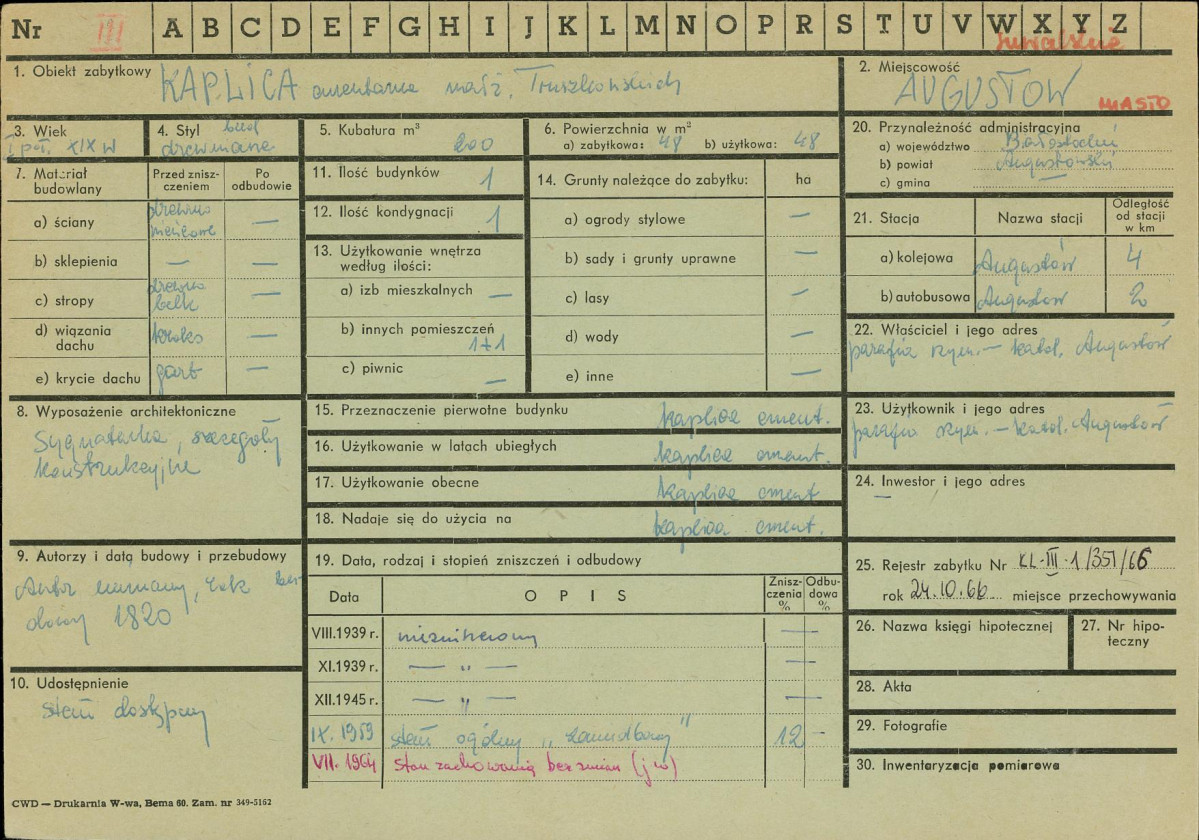 Nr III A B C D E F G H I J K L M N O P R S T U V W X Y Z
Suwalskie
1. Obiekt zabytkowy KAPLICA cmentarna małż. Truszkowskich
2. Miejscowość
AUGUSTÓW MIASTO
3. Wiek
I poł. XIX w
4. Styl bud
drewniane
5. Kubatura m³
200
6. Powierzchnia w m²
a) zabytkowa: 48 b) użytkowa: 48
7. Materiał budowlany
Przed zniszczeniem
Po odbudowie
a) ściany drewno —
b) sklepienia — —
c) stropy drewno belk —
d) wiązania dachu —
e) krycie dachu gont —
8. Wyposażenie architektoniczne
Sygnaturka, szczegóły
konstrukcyjne
9. Autorzy i datą budowy i przebudowy
Autor nieznany, rok bu-
dowy 1820
10. Udostępnienie
stały dostępny
11. Ilość budynków 1
12. Ilość kondygnacji 1
13. Użytkowanie wnętrza
według ilości:
a) izb mieszkalnych —
b) innych pomieszczeń
1+1
c) piwnic —
14. Grunty należące do zabytku: ha
a) ogrody stylowe —
b) sady i grunty uprawne —
c) lasy —
d) wody —
e) inne —
15. Przeznaczenie pierwotne budynku kaplica cment.
16. Użytkowanie w latach ubiegłych kaplica cment.
17. Użytkowanie obecne kaplica cment
18. Nadaje się do użycia na kaplica cment.
19. Data, rodzaj i stopień zniszczeń i odbudowy
Data OPIS Zniszczenia % Odbudowa %
VIII.1939 r. niezniszczony —
XI.1939 r. — „ — —
XII.1945 r. — „ — —
IX. 1959 stan ogólny „zaniedbany" 12 —
VII. 1964 Stan zachowania bez zmian (jw)
20. Przynależność administracyjna
a) województwo Białostockie
b) powiat Augustowski
c) gmina —
21. Stacja Nazwa stacji Odległość od stacji w km
a) kolejowa Augustów 4
b) autobusowa Augustów 2
22. Właściciel i jego adres
parafia rzym.—katol. Augustów
23. Użytkownik i jego adres
parafia rzym.—katol. Augustów
24. Inwestor i jego adres
—
25. Rejestr zabytku Nr KL-III-1/351/66
rok 24.10.66 miejsce przechowywania
26. Nazwa księgi hipotecznej
27. Nr hipoteczny
28. Akta
29. Fotografie
30. Inwentaryzacja pomiarowa
CWD — Drukarnia W-wa, Bema 60. Zam. nr 349-5162